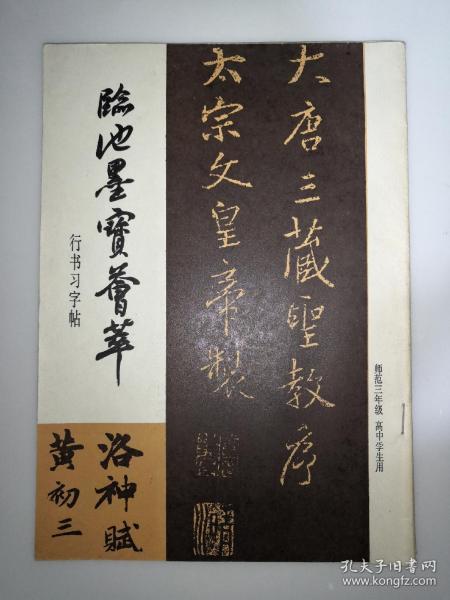 臨池墨寶薈萃
行书习字帖
大唐三藏聖教序
太宗文皇帝製
洛神賦
黄初三
师范三年级 高中学生用
孔夫子旧书网
www.kongfz.com